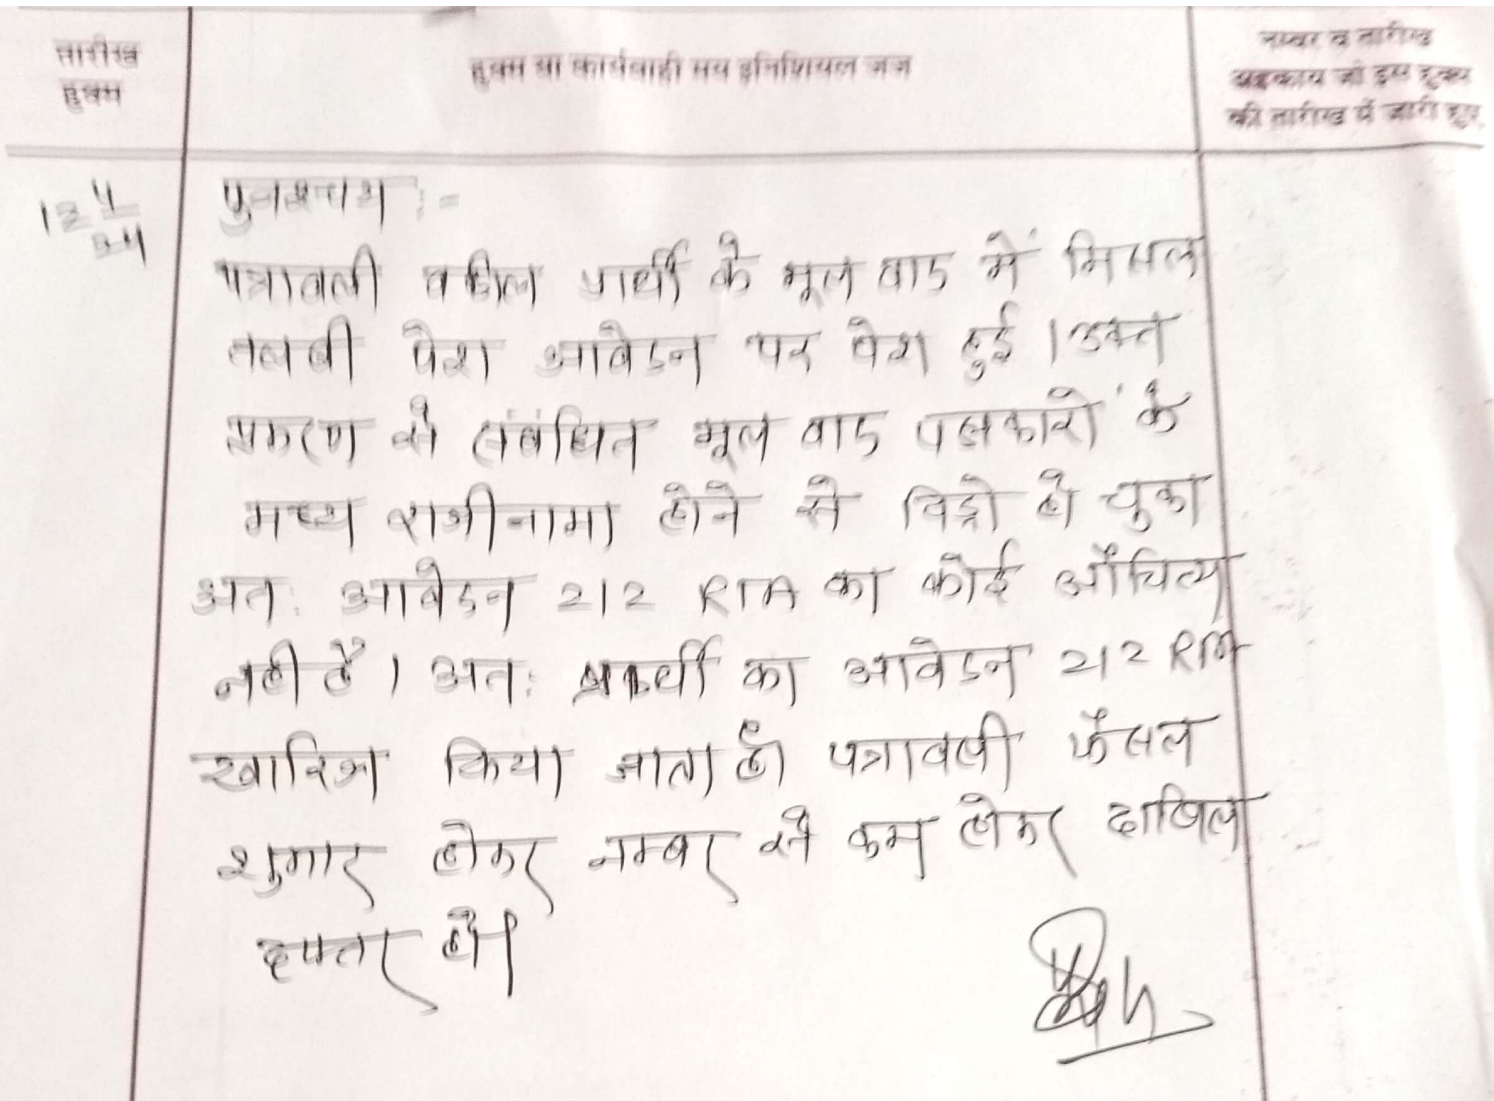 तारीख
हुक्म
हुक्म या कार्यवाही मय इनिशियल जज
नम्बर व तारीख
अहकाम जो इस हुक्म
की तारीख में जारी हुए
12 4
24
पुनश्चय :-
पत्रावली वकील प्रार्थी के मूल वाद में मिसल
तलबी पेश आवेदन पर पेश हुई । उक्त
प्रकरण से संबंधित मूल वाद पक्षकारों के
मध्य राजीनामा होने से विड्रो हो चुका
अतः आवेदन 212 RTA का कोई औचित्य
नही है । अतः प्रार्थी का आवेदन 212 RTA
खारिज किया जाता है। पत्रावली फैसल
शुमार होकर नम्बर से कम होकर दाखिल
दफ्तर हो।